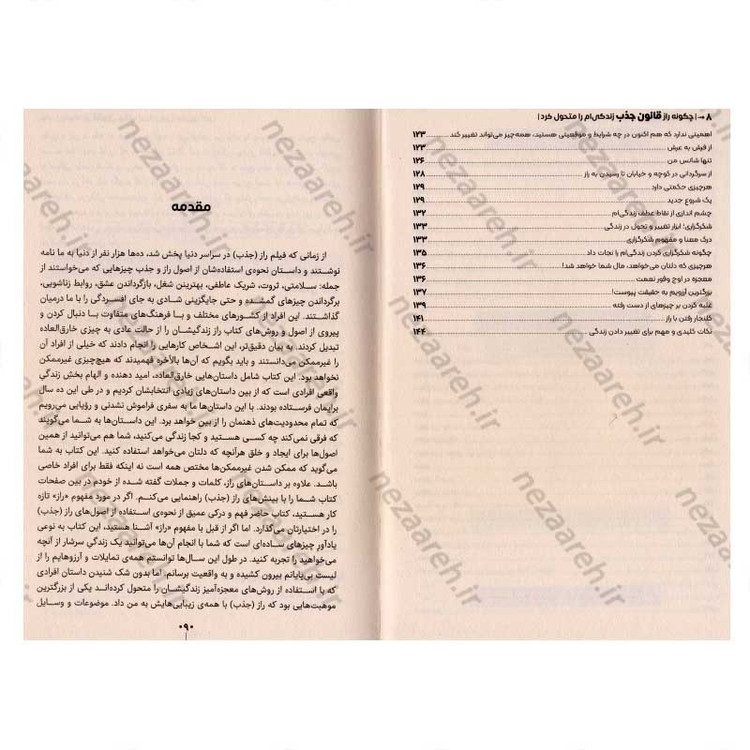 ۸ → | چگونه راز قانون جذب زندگی‌ام را متحول کرد |
اهمیتی ندارد که هم اکنون در چه شرایط و موقعیتی هستید، همه‌چیز می‌تواند تغییر کند ۱۲۳
از فرش به عرش ۱۲۳
تنها شانس من ۱۲۶
از سرگردانی در کوچه و خیابان تا رسیدن به راز ۱۲۸
هرچیزی حکمتی دارد ۱۲۹
یک شروع جدید ۱۲۹
چشم اندازی از نقاط عطف زندگی‌ام ۱۳۲
شکرگزاری؛ ابزار تغییر و تحول در زندگی ۱۳۳
درک معنا و مفهوم شکرگزاری ۱۳۳
چگونه شکرگزاری کردن زندگی‌ام را نجات داد ۱۳۵
هرچیزی که دلتان می‌خواهد، مال شما خواهد شد! ۱۳۶
معجزه در اوج وفور نعمت ۱۳۶
بزرگترین آرزویم به حقیقت پیوست! ۱۳۷
غلبه کردن بر چیزهای از دست رفته ۱۳۹
کلنجار رفتن با راز ۱۴۱
نکات کلیدی و مهم برای تغییر دادن زندگی ۱۴۴
مقدمه
از زمانی که فیلم راز (جذب) در سراسر دنیا پخش شد، ده‌ها هزار نفر از دنیا به ما نامه
نوشتند و داستان نحوه‌ی استفاده‌شان از اصول راز و جذب چیزهایی که می‌خواستند از
جمله: سلامتی، ثروت، شریک عاطفی، بهترینن شغل، بازگرداندن عشق، روابط زناشویی،
برگرداندن چیزهای گمشده و حتی جایگزینی شادی به جای افسردگی را با ما درمیان
گذاشتند. این افراد از کشورهای مختلف و با فرهنگ‌های متفاوت با دنبال کردن و
پیروی از اصول و روش‌های کتاب راز زندگیشان را از حالت عادی به چیزی خارق‌العاده
تبدیل کردند. به بیان دقیق‌تر، این اشخاص کارهایی را انجام دادند که خیلی از افراد آن
را غیرممکن می‌دانستند و باید بگویم که آن‌ها بالاخره فهمیدند که هیچ‌چیزی غیرممکن
نخواهد بود. این کتاب شامل داستان‌هایی خارق‌العاده، امید دهنده و الهام بخش زندگی
واقعی افرادی است که از بین داستان‌های زیادی انتخابشان کردیم و در طی این ده سال
برایمان فرستاده بودند. با این داستان‌ها ما به سفری فراموش نشدنی و رؤیایی می‌رویم
که تمام محدودیت‌های ذهنمان را از بین خواهد برد. این داستان‌ها به شما می‌گویند
که فرقی نمی‌کند چه کسی هستید و کجا زندگی می‌کنید، شما هم می‌توانید از همین
اصول‌ها برای ایجاد و خلق هرآنچه که دلتان می‌خواهد استفاده کنید. این کتاب به شما
می‌گوید که ممکن شدن غیرممکن‌ها مختص همه است نه اینکه فقط برای افراد خاصی
باشد. علاوه بر داستان‌های راز، کلمات و جملات گفته شده از خودم در بین صفحات
کتاب شما را با بینش‌های راز (جذب) راهنمایی می‌کنم. اگر در مورد مفهوم «راز» تازه
کار هستید، کتاب حاضر فهم و درکی عمیق از نحوه‌ی استفاده از اصول‌های راز (جذب)
در اختیارتان می‌گذارد. اما اگر از قبل با مفهوم «راز» آشنا هستید، این کتاب به نوعی
یادآور چیزهای ساده‌ای است که شما با انجام آن‌ها می‌توانید یک زندگی سرشار از آنچه
می‌خواهید را تجربه کنید. در طول این سال‌ها توانستم همه‌ی تمایلات و آرزوهایم را از
لیست بی‌پایانم بیرون کشیده و به واقعیت برسانم. اما بدون شک شنیدن داستان افرادی
که با استفاده از روش‌های معجزه‌آمیز زندگیشان را متحول کرده‌اند یکی از بزرگترین
موهبت‌هایی بود که راز (جذب) با همه‌ی زیبایی‌هایش به من داد. موضوعات و وسایل
۰۹۰
nezaareh.ir
nezaareh.ir
nezaareh.ir
nezaareh.ir
nezaareh.ir
nezaareh.ir
nezaareh.ir
nezaareh.ir